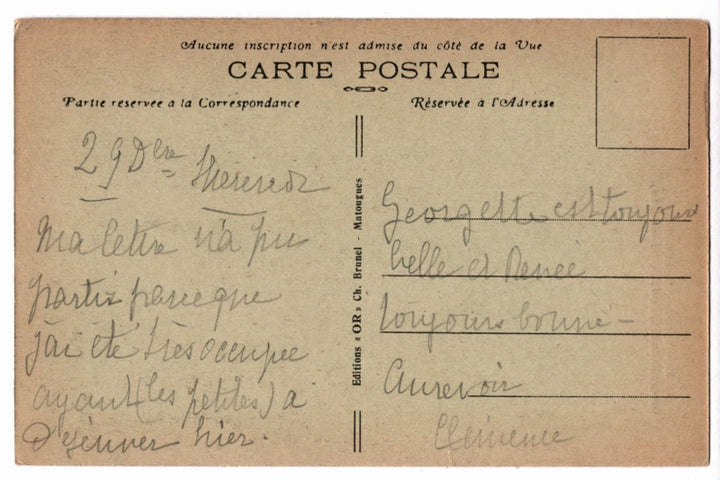 Aucune inscription n'est admise du côté de la Vue
CARTE POSTALE
Partie reservee a la Correspondance
Réservée à l'Adresse
29 Dbre
Ma lettre n'a pu
partir parceque
j'ai été très occupée
ayant (les petites) a
Déjeuner hier.
Editions « OR » Ch. Brunel - Matougues
Georgette est toujours
belle et Renée
toujours bonne -
Aurevoir
Clémence